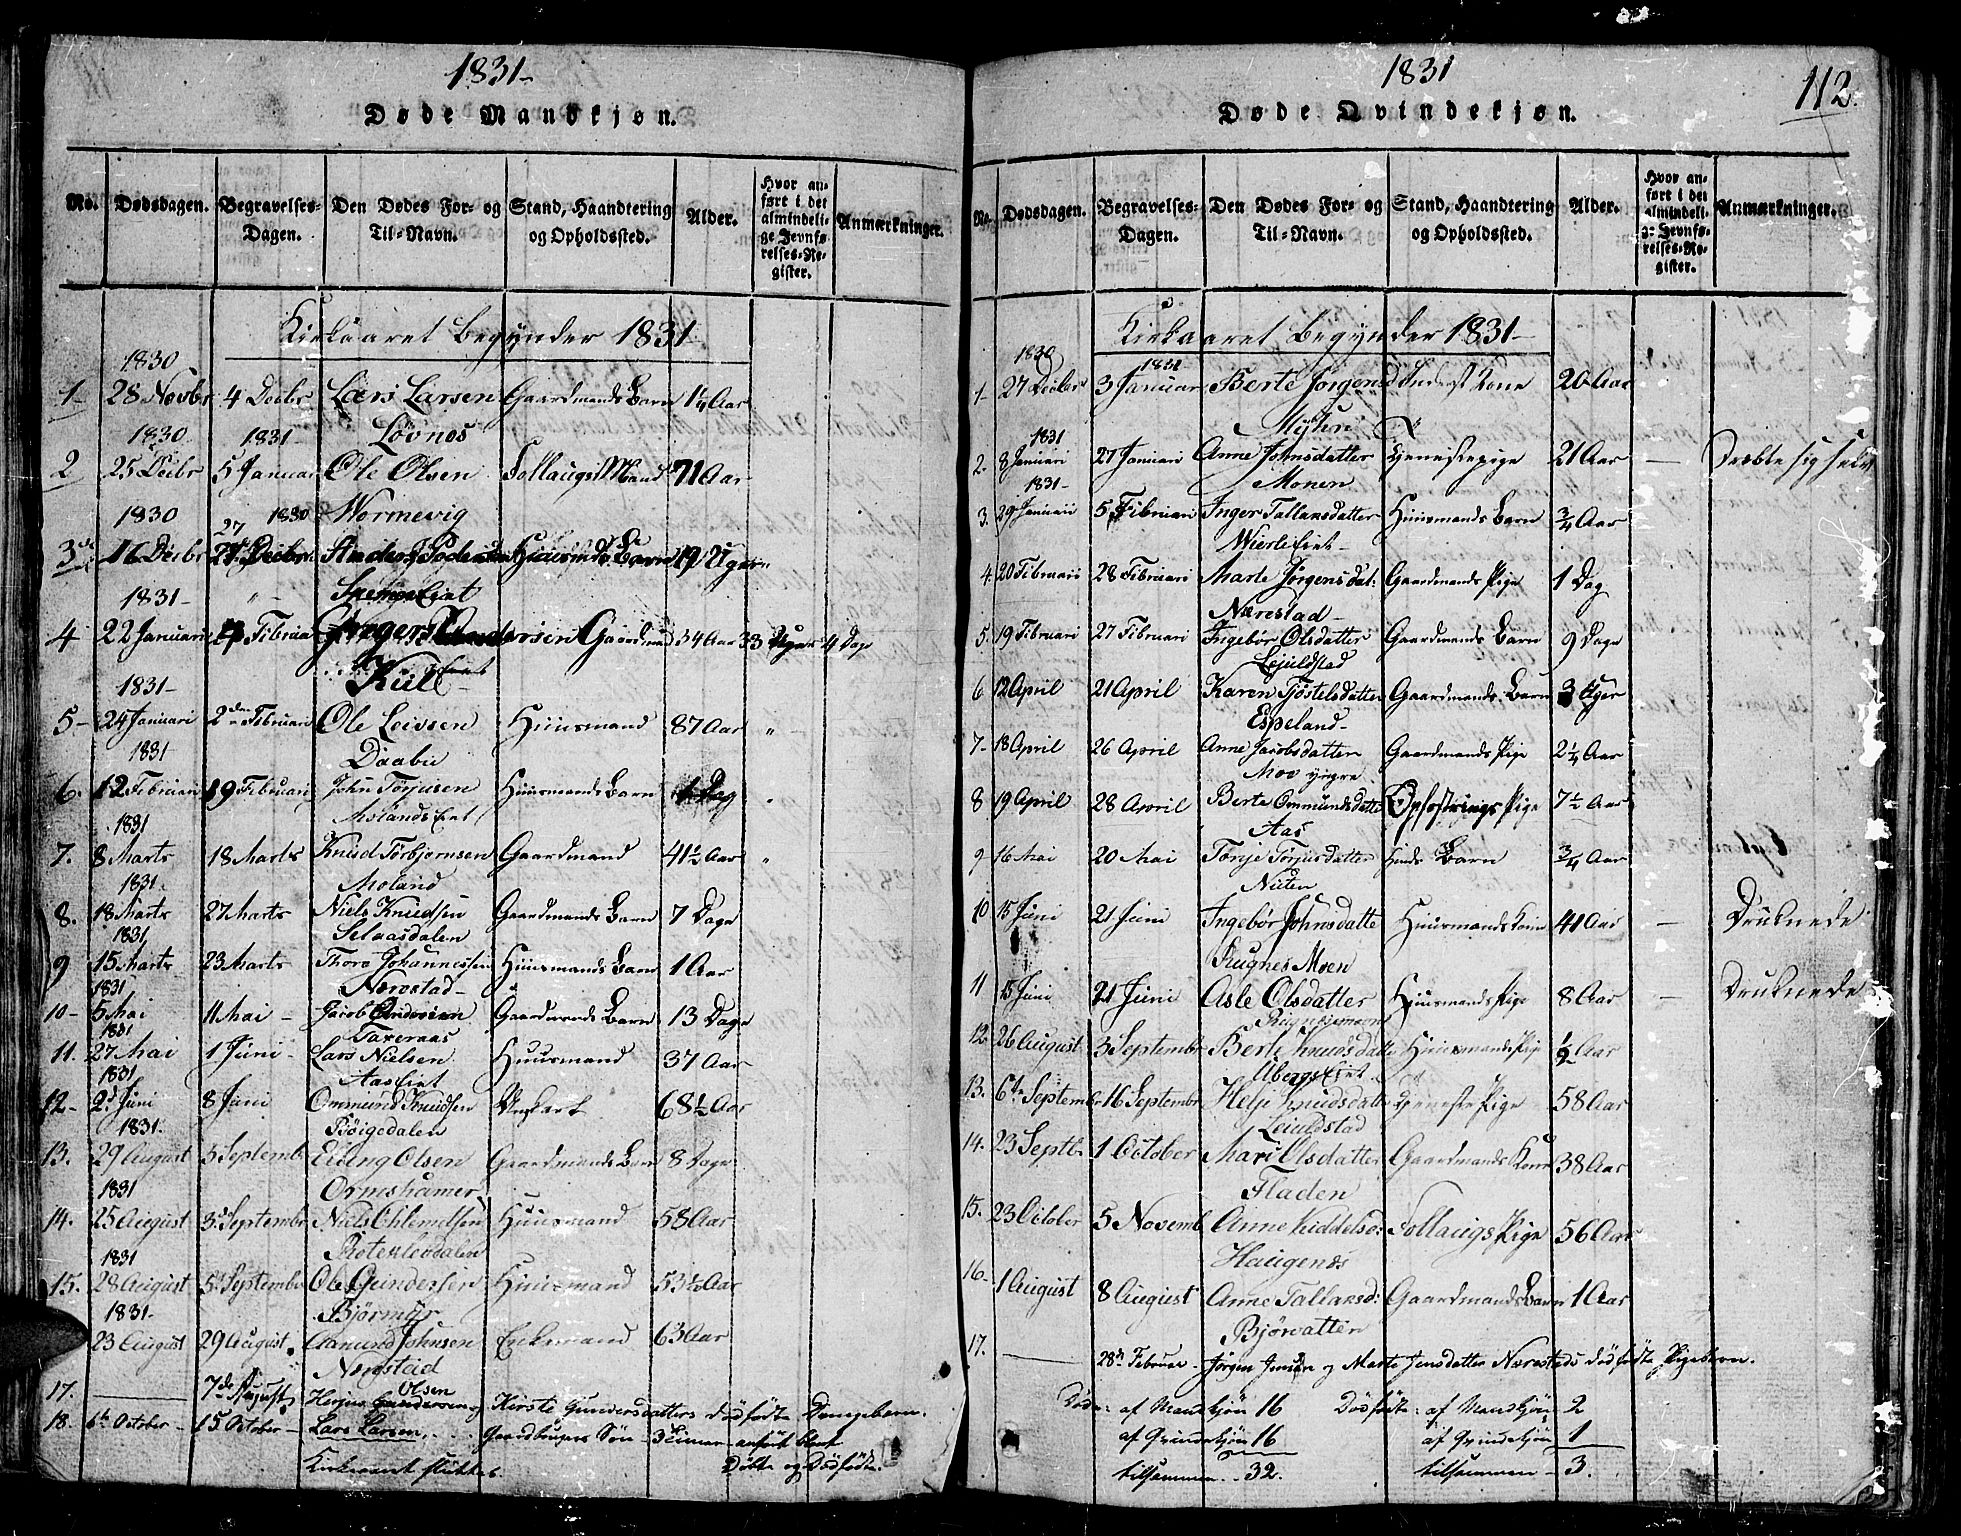 1831-
Døde Mandkjøn.
No. Dødsdagen. Begravelses-Dagen. Den Dødes For- og Til-Navn. Stand, Haandtering og Opholdssted. Alder. Hvor anført i det almindelige Jevnførelses-Register. Anmærkninger.
Kirkaaret begynder 1831
1830
1 28 Novbr 4 Decbr Lars Larsen Gaardmands Barn 1¼ Aar
1830 1831- Løvnes
2 25 Decbr 5 Januar Ole Olsen Mand 71 Aar
1830 1830 Wormevig
3 16 Decbr 27 Decbr Huusmds Barn 19 Uger
1831-
4 22 Januarii Februar Andersen Gaardmad 34 Aar 33 Uger 4 Dage
Kiil
1831-
5- 24 Januari 2den Februari Ole Leissen Huusmand 87 Aar "
1831 Daabu
6. 12 Februari 19 Februari John Torjusen Huusmands Barn 1 Dag "
1831 Molands Eiet
7. 8 Marts 18 Marts Knud Torbjørnsen Gaardmand 41½ Aar "
1831. Moland
8. 18 Marts 27 Marts Niels Knudsen Gaardmands Barn 7 Dage
1831 Selaasdalen
9 15 Marts 23 Marts Thore Johannessen Huusmands Barn 1 Aar
1831 Nærestad-
10- 5 Mai 11 Mai - Jacob Andersen Gaardmands Barn 13 Dage
1831 Taxeraas
11. 27 Mai 1 Juni- Lars Nielsen Huusmand 37 Aar
1831 Aas Eiet
12- 2d Juni 8 Juni Ommund Knudsen 68½ Aar
1831. Bøigedalen
13. 29 August 5 Septemb Eling Olsen Gaardmands Barn 8 Dage
1831 Ørneshamer
14. 25 August 3d Septembr Niels Huusmand 58 Aar
1831
15. 28 August 5d Septembr Ole Gundersen Huusmand 53½ Aar
1831. Bjørmyr
23 August 29 August. Aamund Johnsen Enkemand 63 Aar
Nærestad
17. 7de August Olsen Kirste Gundersdatters dødfødte Drengebarn.
18. 6te October - 15 October - Lars Larsen Gaardbrugers Søn 3 Timer anført blant
Kirkeaaret sluttes Døbte og Dødfødte.
1831
112.
Døde Qvindekjøn.
No. Dødsdagen. Begravelses-Dagen. Den Dødes For- og Til-Navn. Stand, Haandtering og Opholdssted. Alder. Hvor anført i det almindelige Jevnførelses-Register. Anmærkninger.
Kirkaaret begynder 1831-
1830 1831
1- 27 Decbr 3 Januar Berte Jørgensd Inderst Kone 20 Aar
1831 Myhre
2. 8 Januari 27 Januari Anne Johnsdatter Tjenestepige 21 Aar - Dræbte sig selv
1831- Monen
3. 29 Januari 5 Februari Inger Tallansdatter Huusmands Barn ¾ Aar
4. 20 Februari 28 Februari Marte Jørgensdat: Gaardmands Pige 1 Dag
Nærestad-
5. 19 Februari 27 Februari Ingebor Olsdatter Gaardmands Barn 9 Dage
Lejuldstad
6 12 April 21 April Karen Tjøstelsdatter Gaardmands Barn 3 Uger
Espeland-
7- 18 April 26 April Anne Jacobsdatter Gaardmands Pige 2¼ Aar
Moe yngre
8 19 April 28 April Berte Ommundsdatte Opfostrings Pige 7½ Aar
Aas
9 16 Mai 20 Mai Tonje Torjusdatter Barn ¾ Aar
10 15 Juni 21 Juni Ingebor Johnsdatte Huusmands Kone 41 Aar - Druknede
Rugnes Moen
11 15 Juni 21 Juni Asle Olsdatter Huusmands Pige 8 Aar - Druknede
12 26 August 3 Septembr Berte Knudsdatte Huusmands Pige ½ Aar
13. 6te Septemb 16 Septembr Helje Knudsdatter Tjeneste Pige 58 Aar
Leiuldstad
14. 23 Septb. 1 October Mari Olsdatter Gaardmands Kone 38 Aar
Fladen
15. 23 October 5 Novemb Anne Kiddelsd: Pige 56 Aar
Haugenes
16- 1 August 8 August Anne Tallansd: Gaardmands Barn 1 Aar
Bjørvatten
17. - 28de Februar - Jørgen Jensen og Marte Jensdatter Nærestads dødfødte Pigebarn.
Døde: af Mandkjøn 16 Dødfødte: af Mandkjøn 2
af Qvindekjøn 16 af Qvindekjøn 1
tilsammen - 32. tilsammen - 3.